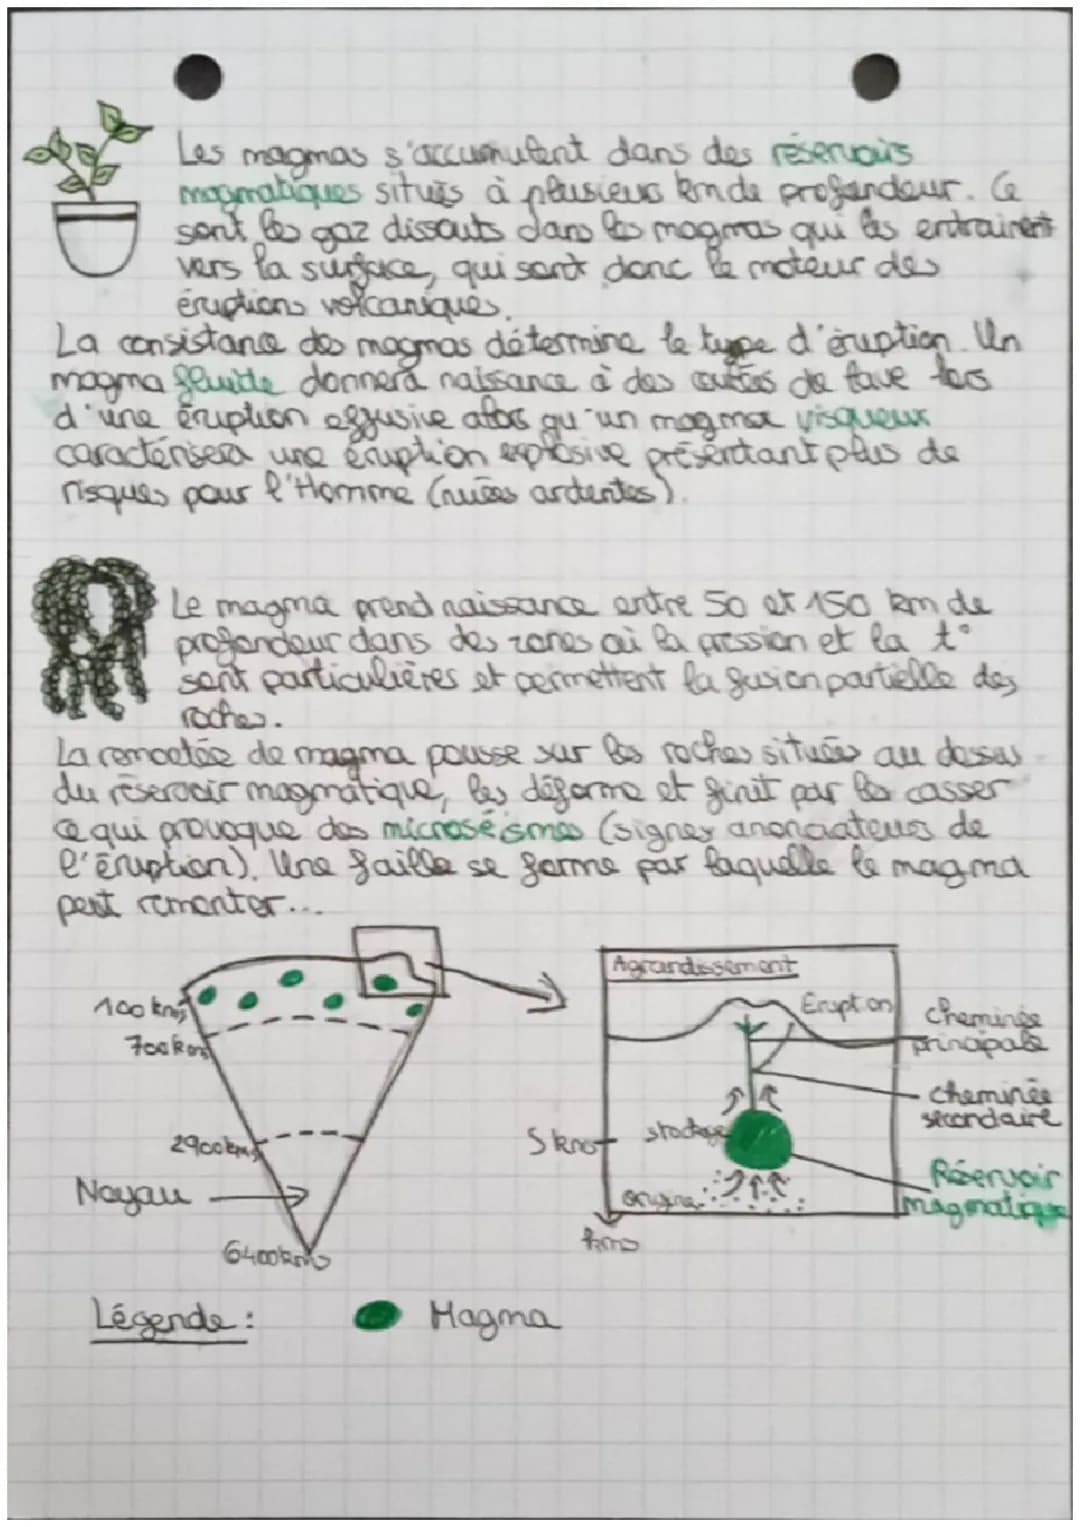 Les magmas s'accumulent dans des réservoirs
magmatiques situés à plusieurs km de profondeur. Ce
sont les gaz dissouts dans les magmas qui les entrainent
vers la surface, qui sont donc le moteur des
éruptions volcaniques.
La consistance des magmas détermine le type d'éruption. Un
magma fluide donnera naissance à des coulées de lave lors
d'une éruption effusive alors qu'un magma visqueux
caractérisera une éruption explosive présentant plus de
risques pour l'Homme (nuées ardentes).
Le magma prend naissance entre 50 et 150 km de
profondeur dans des zones où la pression et la t°
sont particulières et permettent la fusion partielle des
roches.
La remontée de magma pousse sur les roches situées au dessus
du réservoir magmatique, les déforme et finit par les casser
ce qui provoque des microséismes (signes annonciateurs de
l'éruption). Une faille se forme par laquelle le magma
peut remonter...
Agrandissement
100 kms
700 kms
2900 kms
Noyau
6400 kms
Eruption
cheminée
principale
cheminée
secondaire
5 kms
stockage
Réservoir
magmatique
origine
kms
Légende :
Magma